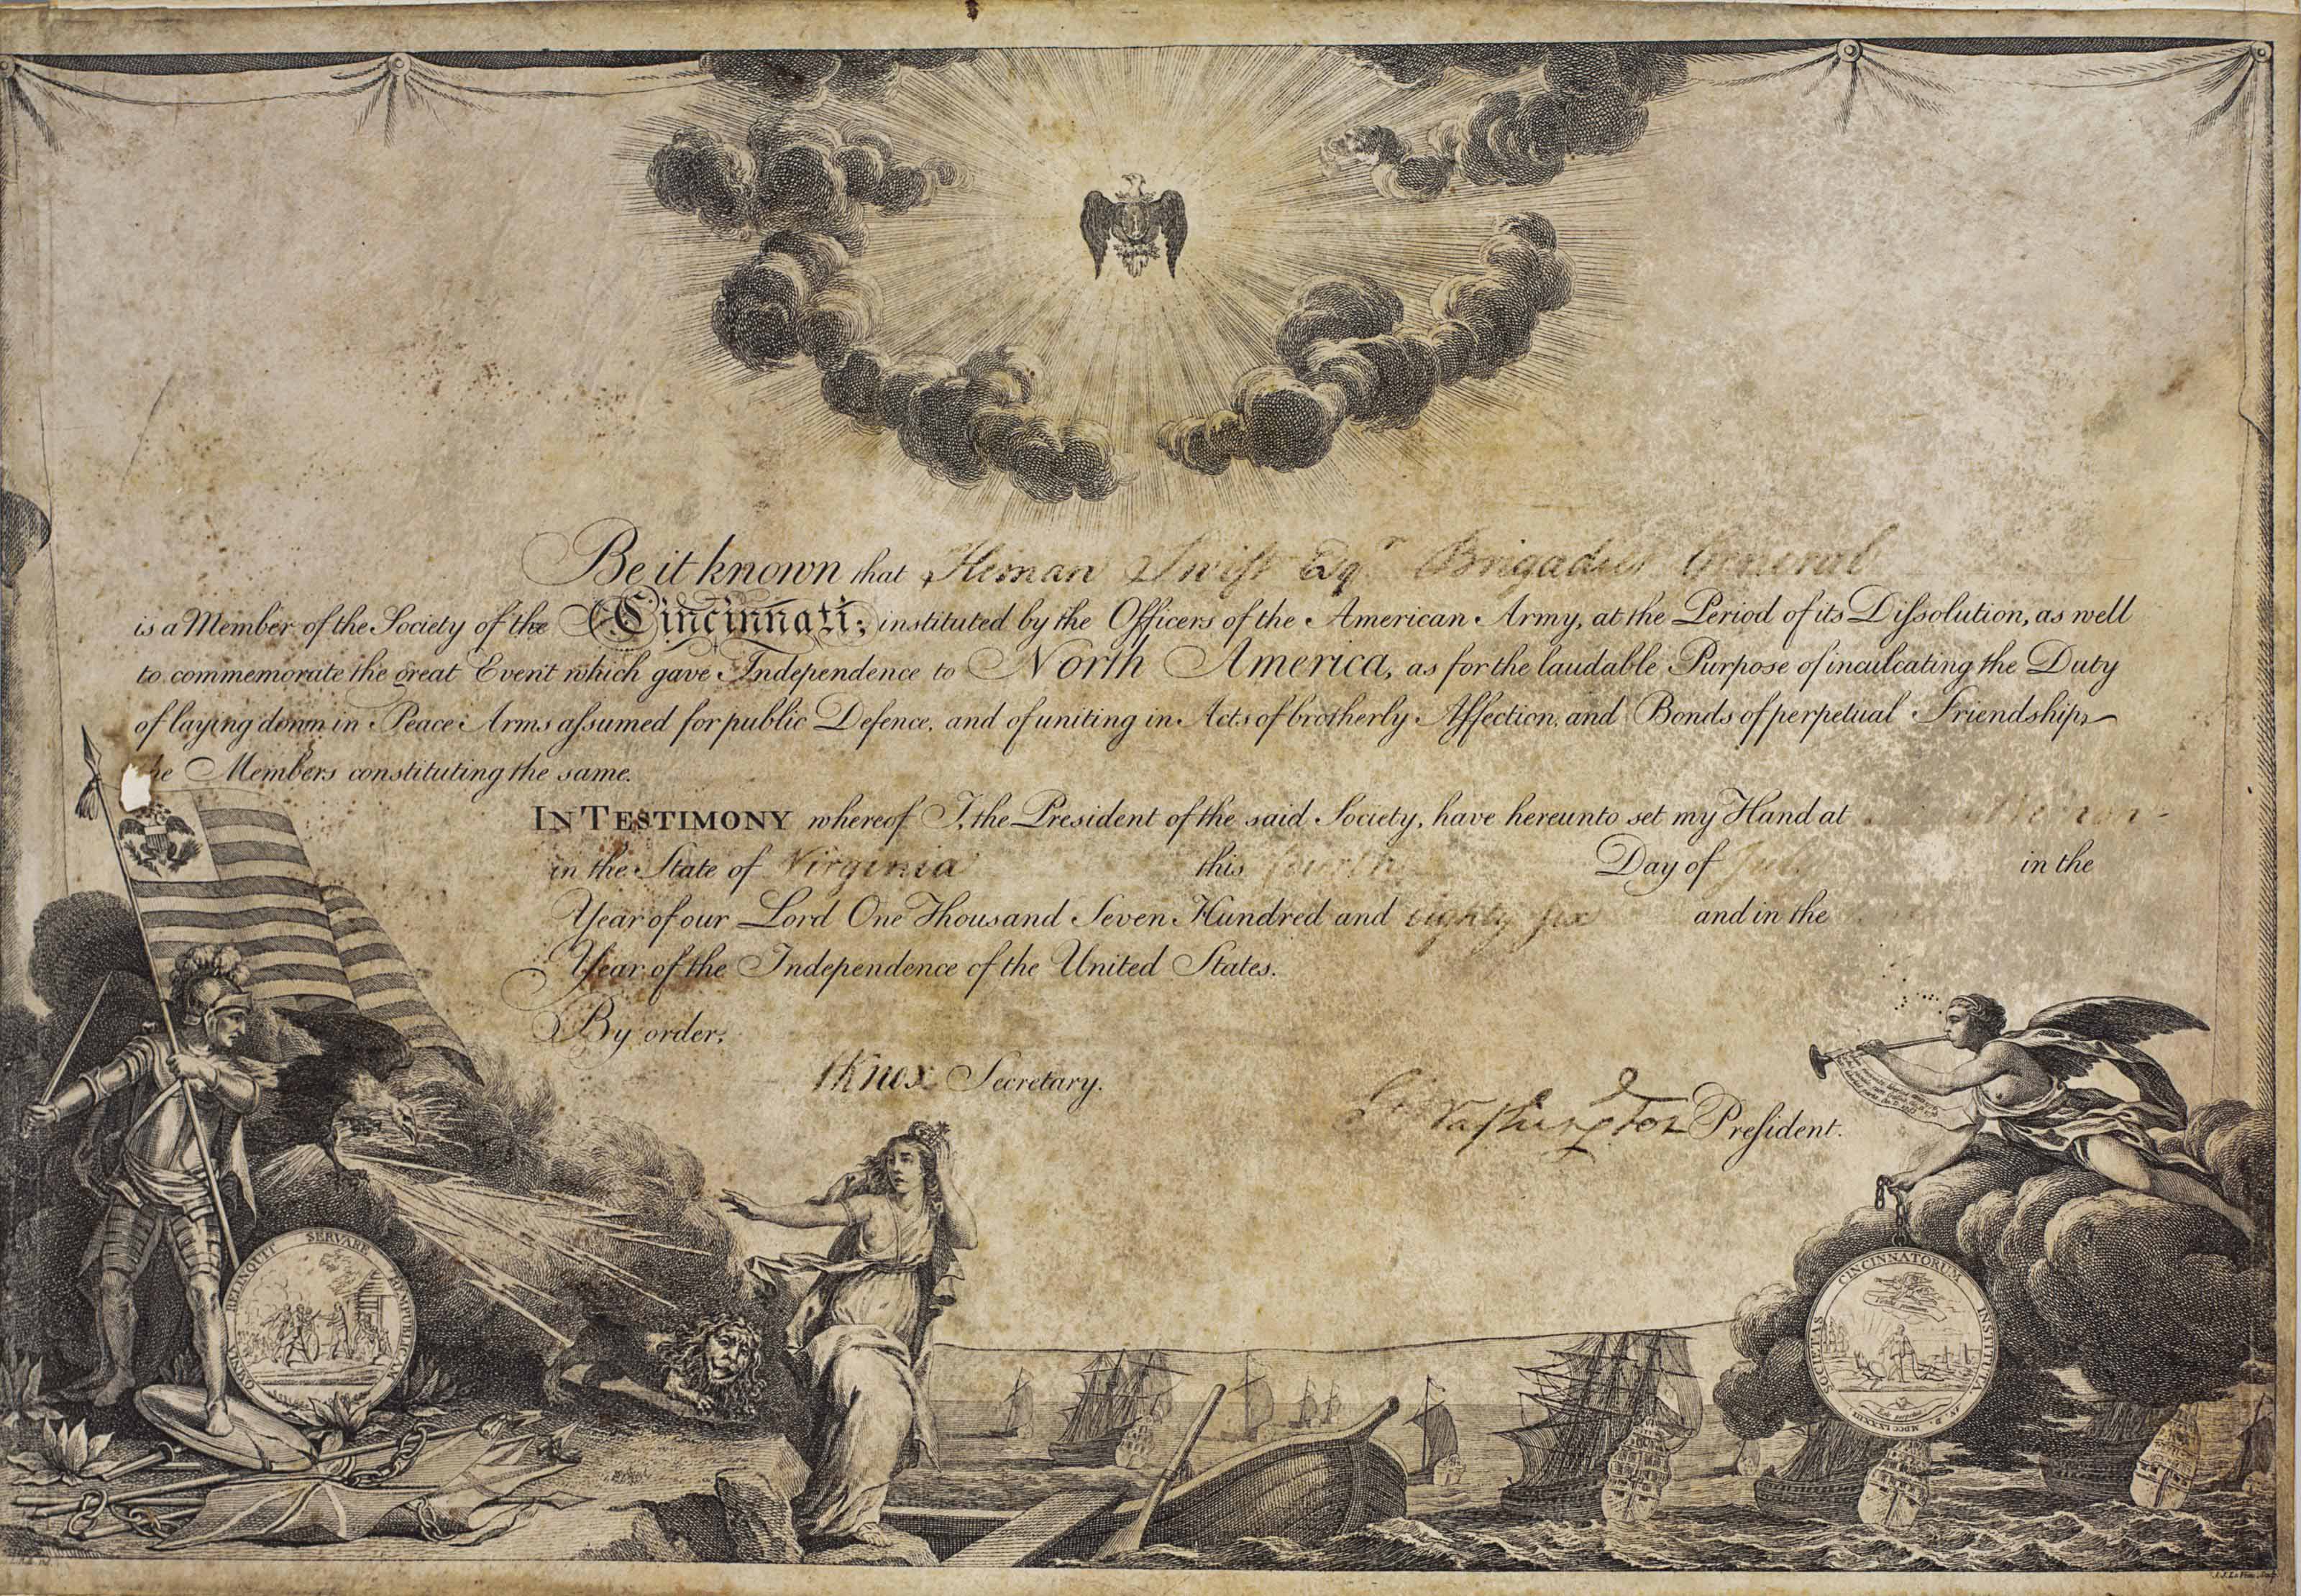 Be it known that Heman Swift Esqr Brigadier General
is a Member of the Society of the Cincinnati; instituted by the Officers of the American Army, at the Period of its Dissolution, as well
to commemorate the great Event which gave Independence to North America, as for the laudable Purpose of inculcating the Duty
of laying down in Peace Arms assumed for public Defence, and of uniting in Acts of brotherly Affection, and Bonds of perpetual Friendship,
he Members constituting the same.
IN TESTIMONY whereof I, the President of the said Society, have hereunto set my Hand at
in the State of Virginia this fourth Day of July in the
Year of our Lord One Thousand Seven Hundred and eighty six and in the
Year of the Independence of the United States.
By order,
HKnox Secretary.
Go Washington President.
OMNIA RELINQUIT SERVARE REMPUBLICAM
SOCIETAS CINCINNATORUM INSTITUTA